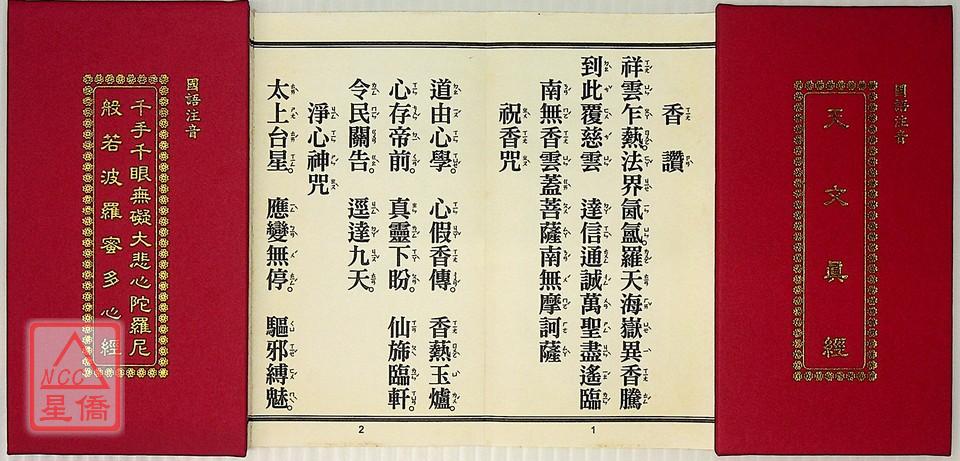 國語注音
天文眞經
香讚
祥雲乍熱。法界氤氳羅天海嶽異香騰
到此覆慈雲 達信通誠萬聖盡遙臨
南無香雲蓋菩薩南無摩訶薩
祝香咒
1
道由心學。 心假香傳。 香熱玉爐。
心存帝前。 真靈下盼。 仙旆臨軒。
令民關告。 逕達九天。
淨心神咒
太上台星。 應變無停。 驅邪縛魅。
2
國語注音
千手千眼無礙大悲心陀羅尼
般若波羅蜜多心經
NCC
星僑